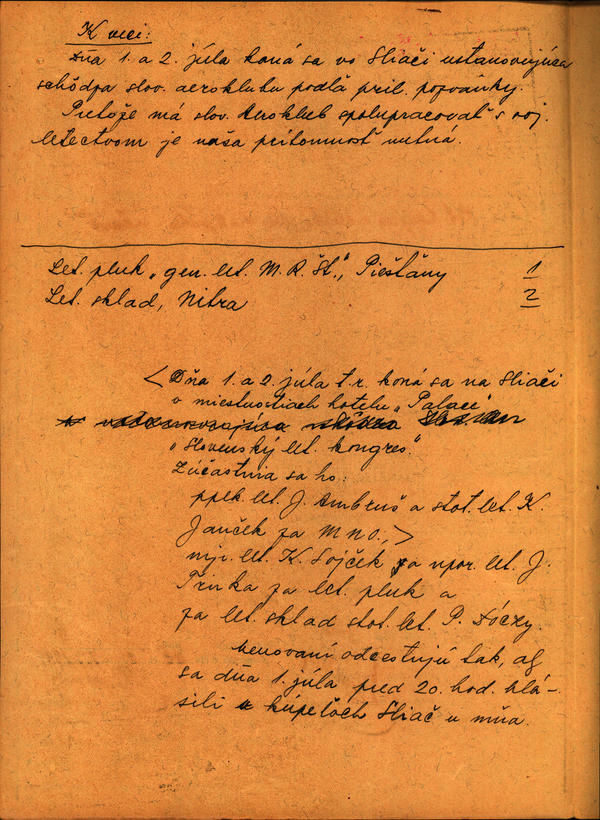 K veci:
Dňa 1. a 2. júla koná sa vo Sliači ustanovujúca
schôdza slov. aeroklubu podľa pril. pozvánky.
Pretože má slov. Aeroklub spolupracovať s voj.
letectvom je naša prítomnosť nutná.
Let. pluk „gen. let. M. R. Št.", Piešťany 1
Let. sklad, Nitra 2
<Dňa 1. a 2. júla t.r. koná sa na Sliači
v miestnostiach hotelu „Palace"
„Slovenský let. kongres".
Zúčastnia sa ho:
pplk. let. J. Ambruš a stot. let. K.
Janček za MNO.,>
mjr. let. K. Sojček a npor. let. J.
za let. pluk a
za let. sklad stot. let. P. Dóczy.
Menovaní odcestujú tak, aby
sa dňa 1. júla pred 20. hod. hlá-
sili v kúpeľoch Sliač u mňa.